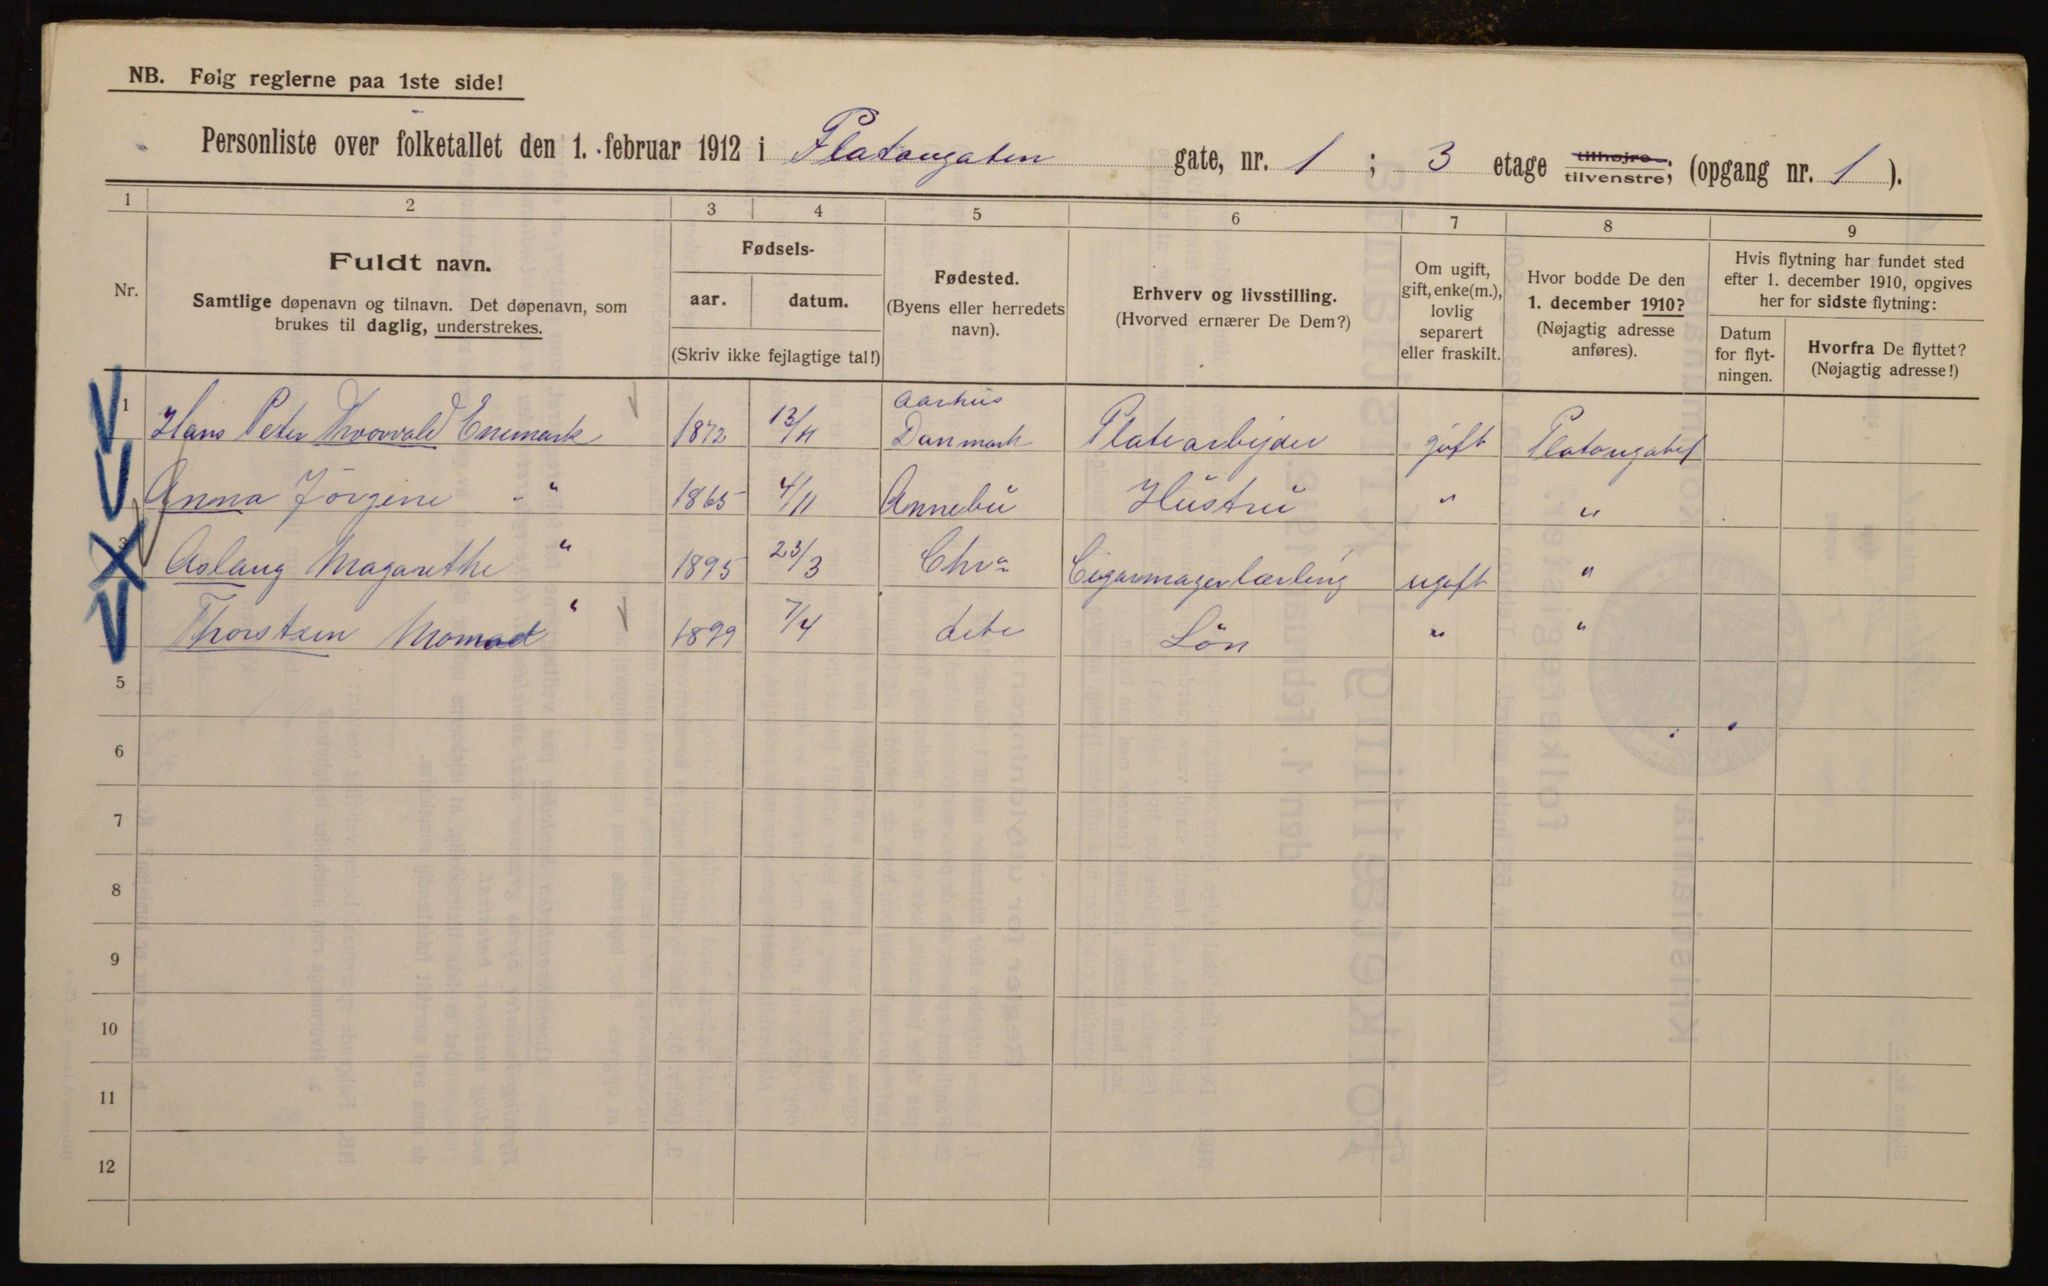 NB. Følg reglerne paa 1ste side!
Personliste over folketallet den 1. februar 1912 i Platougaten gate, nr. 1 ; 3 etage tilhøjre tilvenstre; (opgang nr. 1 ).
1 2 3 4 5 6 7 8 9
Nr.
Fuldt navn.
Samtlige døpenavn og tilnavn. Det døpenavn, som
brukes til daglig, understrekes.
Fødsels-
aar. datum.
(Skriv ikke fejlagtige tal!)
Fødested.
(Byens eller herredets
navn).
Erhverv og livsstilling.
(Hvorved ernærer De Dem?)
Om ugift,
gift, enke(m.),
lovlig
separert
eller fraskilt.
Hvor bodde De den
1. december 1910?
(Nøjagtig adresse
anføres).
Hvis flytning har fundet sted
efter 1. december 1910, opgives
her for sidste flytning:
Datum
for flyt-
ningen.
Hvorfra De flyttet?
(Nøjagtig adresse!)
1 Hans Peter Thorvald Enemark 1872 13/11 Aarhus Danmark Platearbejder gift Platougaten
Anna Jörgine - " 1865 4/11 Annebu Hüstru " "
3 Aslaug Magarethe " 1895 23/3 Chra Cigarmagerlærling ugift "
Thorstein " 1899 7/4 dito Sön " "
5
6
7
8
9
10
11
12